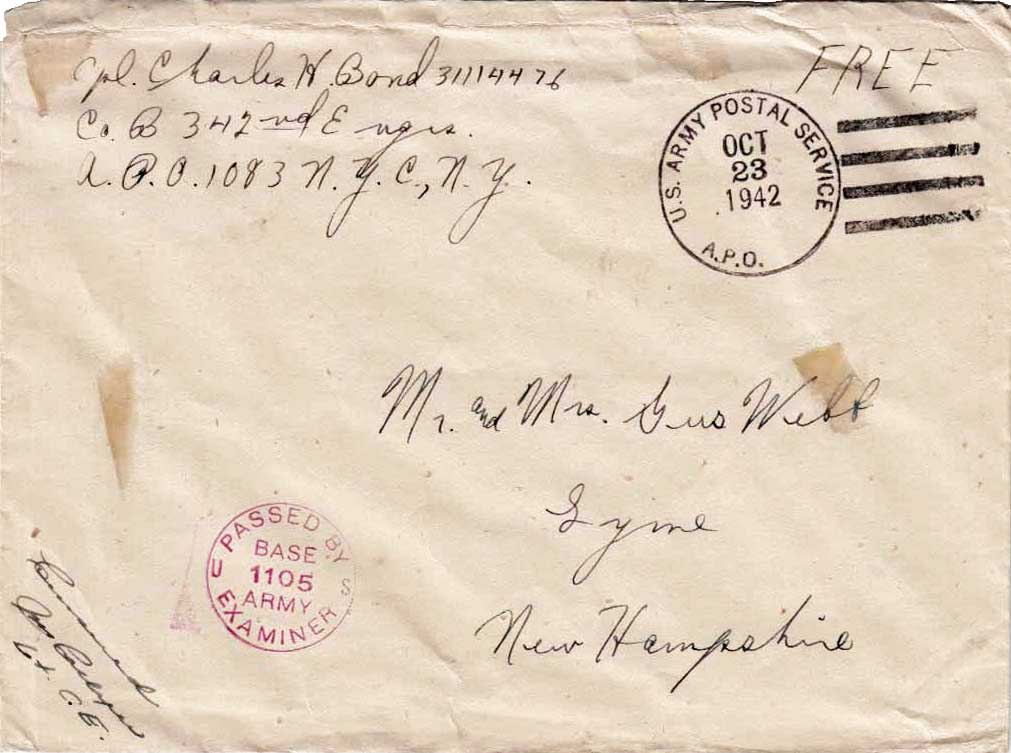 Cpl. Charles H Bond 31114476
Co. B 342nd Engrs.
A.P.O. 1083 N.Y.C., N.Y.
FREE
U.S. ARMY POSTAL SERVICE
OCT
23
1942
A.P.O.
Mr. and Mrs. Gus Webb
Lyme
New Hampshire
PASSED BY
BASE
1105
ARMY
EXAMINER
U S
Censored
Lt. C.E.